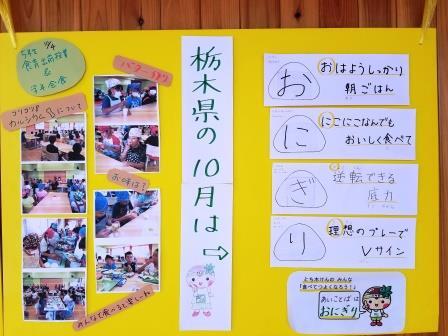 5年生 10/4
食育出前授業
&
3年会食
コツコツ
カルシウムについて
バターづくり
お味は?
みんなで食べると楽しいね
栃木県の10月は⇨
お
おはようしっかり
朝ごはん
に
にこにこなんでも
おいしく食べて
ぎ
逆転できる
底力
り
理想のプレーで
Vサイン
とち木けんのみんな
「食べてつよくなろう!」
あいことばは
おにぎり